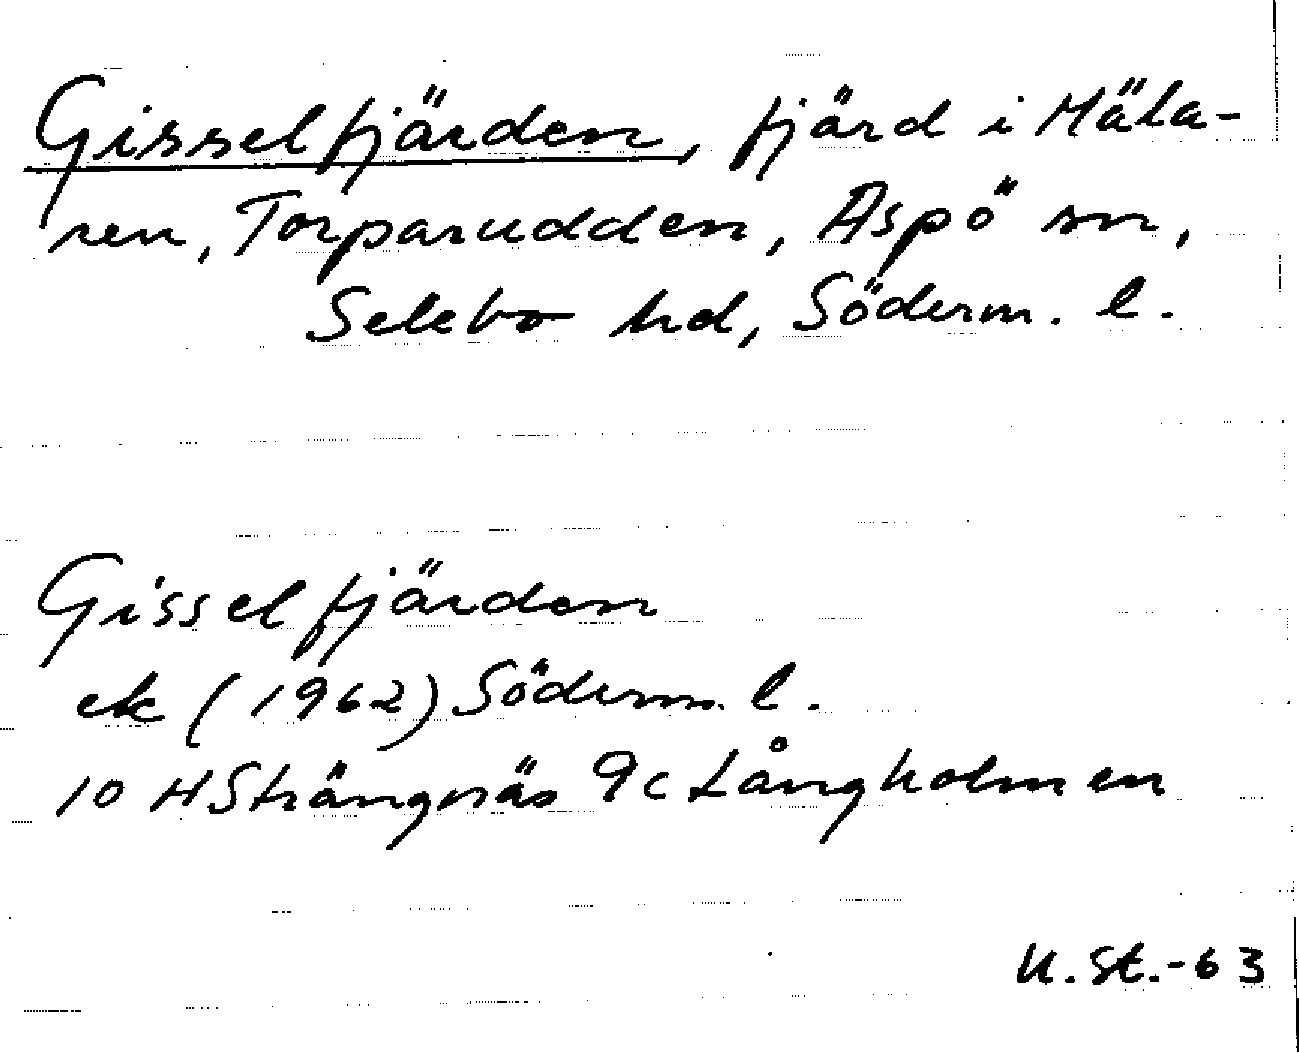 Gisselfjärden, fjärd i Mäla-
ren, Torparudden, Aspö sn,
Selebo hd, Söderm. l.
Gisselfjärden
ek (1962) Söderm. l.
10 H Strängnäs 9c Långholmen
U. St. -63